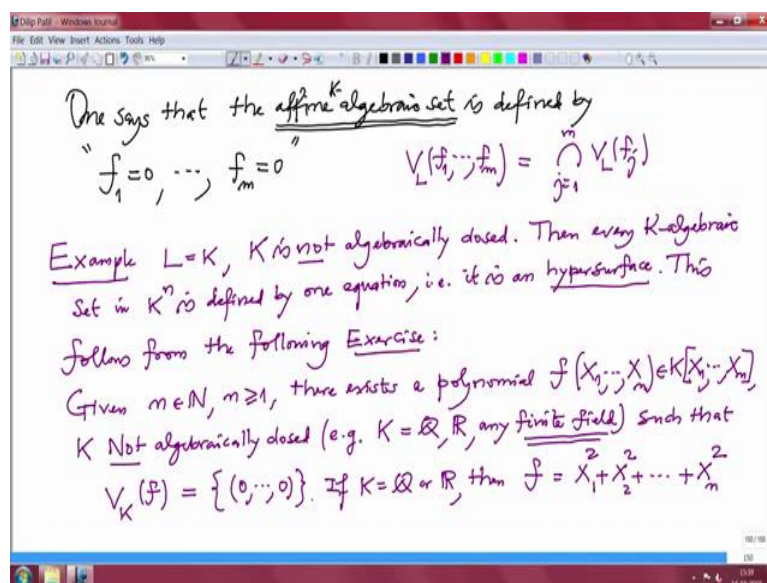 Dilip Patil - Windows Journal
File Edit View Insert Actions Tools Help
One says that the affine K-algebraic set is defined by
"f₁=0, ..., fₘ=0" V_L(f₁,...,fₘ) = ⋂_{j=1}^{m} V_L(f_j)
Example L=K, K is not algebraically closed. Then every K-algebraic
set in Kⁿ is defined by one equation, i.e. it is an hypersurface. This
follows from the following Exercise:
Given m∈ℕ, m≥1, there exists a polynomial f(X₁,...,Xₘ)∈K[X₁,...,Xₘ],
K Not algebraically closed (e.g. K=ℚ, ℝ, any finite field) such that
V_K(f) = {(0,...,0)}. If K=ℚ or ℝ, then f = X₁²+X₂²+...+Xₘ²
150
15:39